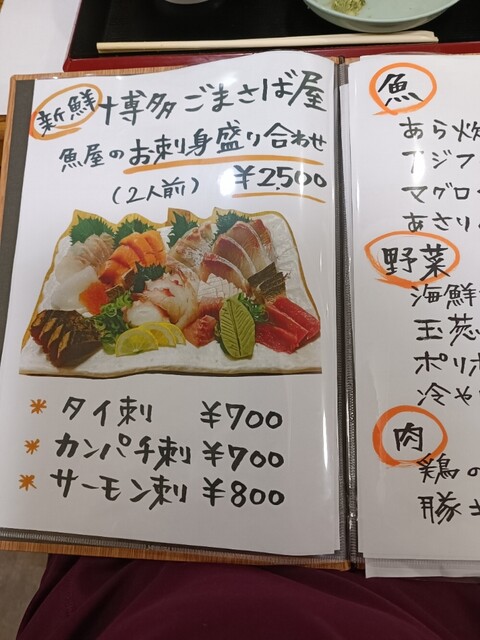 新鮮 博多ごまさば屋
魚屋のお刺身盛り合わせ
(2人前) ¥2,500
* タイ刺 ¥700
* カンパチ刺 ¥700
* サーモン刺 ¥800
魚
あら炊
アジフ
マグロ
あさり
野菜
海鮮
玉葱
ポリポ
冷や
肉
鶏の
豚